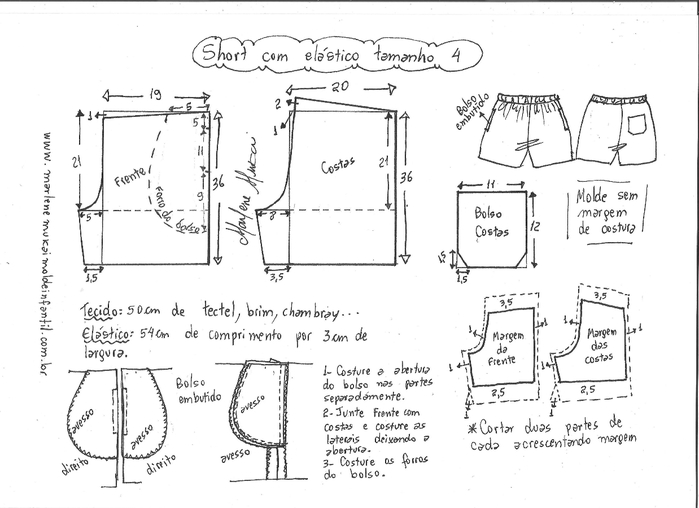 Short com elástico tamanho 4
www.marlenemukaimoldeinfantil.com.br
19
5
1
21
5
11
9
36
Frente
Forro do
Bolso
5
1,5
Marlene Mukai
20
2
1
Costas
21
36
3
3,5
Bolso
embutido
11
Bolso
Costas
12
1,5
1,5
Molde sem
margem
de costura
Tecido: 50cm de tectel, brim, chambray...
Elástico: 54cm de comprimento por 3cm de
largura.
avesso
avesso
direito
direito
Bolso
embutido
avesso
avesso
1- Costure a abertura
do bolso nas partes
separadamente.
2- Junte Frente com
costas e costure as
laterais deixando a
abertura.
3- Costure os forros
do bolso.
3,5
1
1
1
Margem
da
Frente
2,5
3,5
1
1
1
Margem
das
costas
2,5
*Cortar duas partes de
cada acrescentando margem